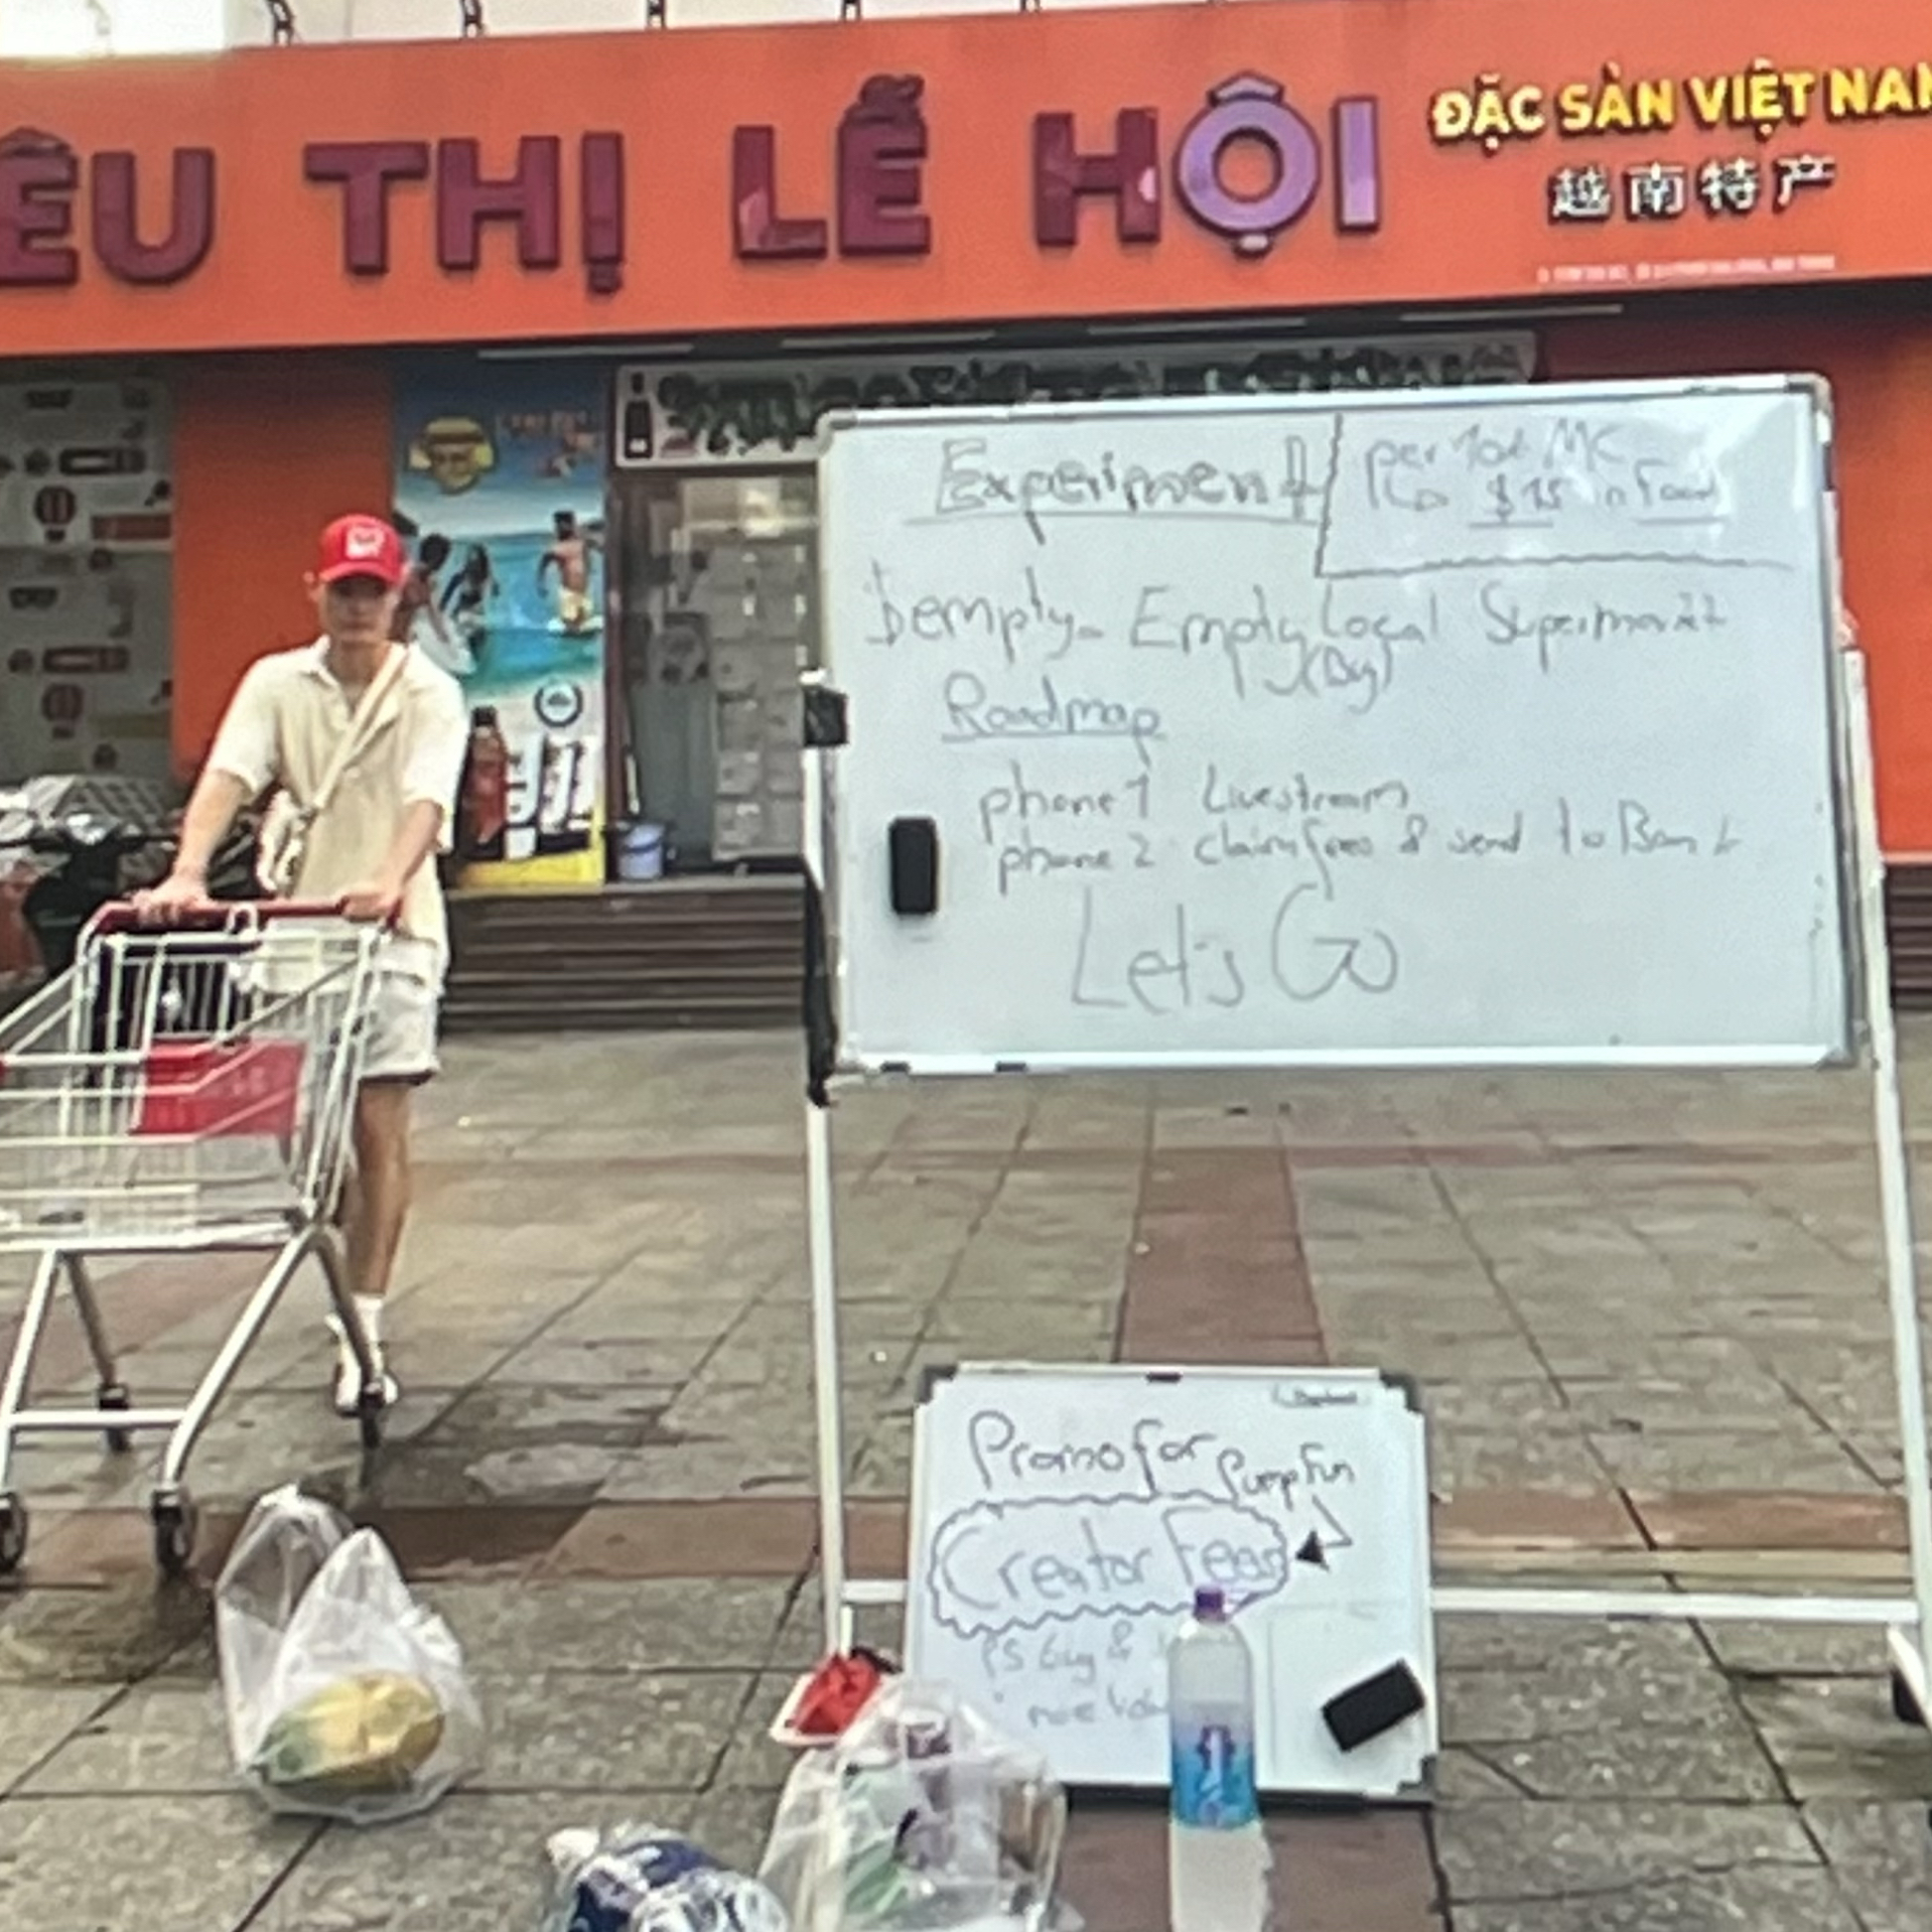 ÊU THỊ LỄ HỘI
ĐẶC SẢN VIỆT NAM
越南特产
Experiment
per 10k MC
$15 in Food
$empty - Empty Local Supermarkt
(Buy)
Roadmap
phone 1 Livestream
phone 2 claim fees & send to Bank
Let's Go
Promo for PumpFun
Creator Fees
PS Buy &